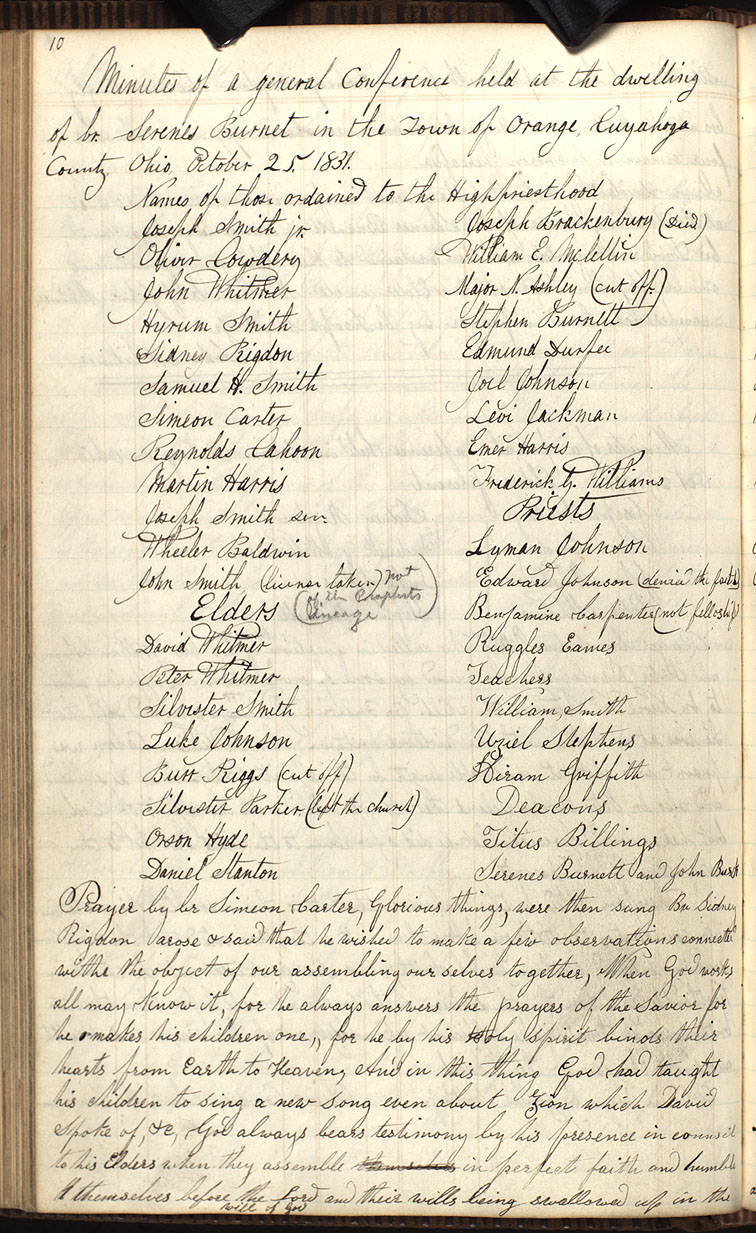 10
Minutes of a general Conference held at the dwelling
of br. Serenes Burnet in the Town of Orange, Cuyahoga
County Ohio, October 25. 1831.
Names of those ordained to the Highpriesthood
Joseph Smith jr.
Oliver Cowdery
John Whitmer
Hyrum Smith
Sidney Rigdon
Samuel H. Smith
Simeon Carter
Reynolds Cahoon
Martin Harris
Joseph Smith sen.
Wheeler Baldwin
John Smith (license taken) not
of the Prophets
lineage
Elders
David Whitmer
Peter Whitmer
Silvester Smith
Luke Johnson
Burr Riggs (cut off)
Silvester Parker (left the church)
Orson Hyde
Daniel Stanton
Joseph Brackenbury (Died)
William E. Mclellin
Major N. Ashley (cut off)
Stephen Burnett
Edmund Durfee
Joel Johnson
Levi Jackman
Emer Harris
Frederick G. Williams
Priests
Lyman Johnson
Edward Johnson (denied the faith)
Benjamine Carpenter (not felloship)
Ruggles Eames
Teachers
William Smith
Uriel Stephens
Hiram Griffith
Deacons
Titus Billings
Serenes Burnett and John Burk
Prayer by br Simeon Carter, Glorious things, were then sung Br. Sidney
Rigdon arose & said that he wished to make a few observations connected
withe the object of our assembling our selves together, When God works
all may know it, for he always answers the prayers of the Savior for
he makes his children one,, for he by his Holy spirit binds their
hearts from Earth to Heaven, And in this thing God had taught
his children to sing a new song even about Zion which David
spoke of, &c, God always bears testimony by his presence in council
to his Elders when they assemble themselves in perfect faith and humble
themselves before the Lord and their wills being swallowed up in the
will of God